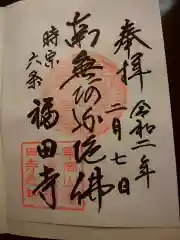 奉拝
令和二年
二月七日
南無阿弥陀佛
時宗
六条
福田寺